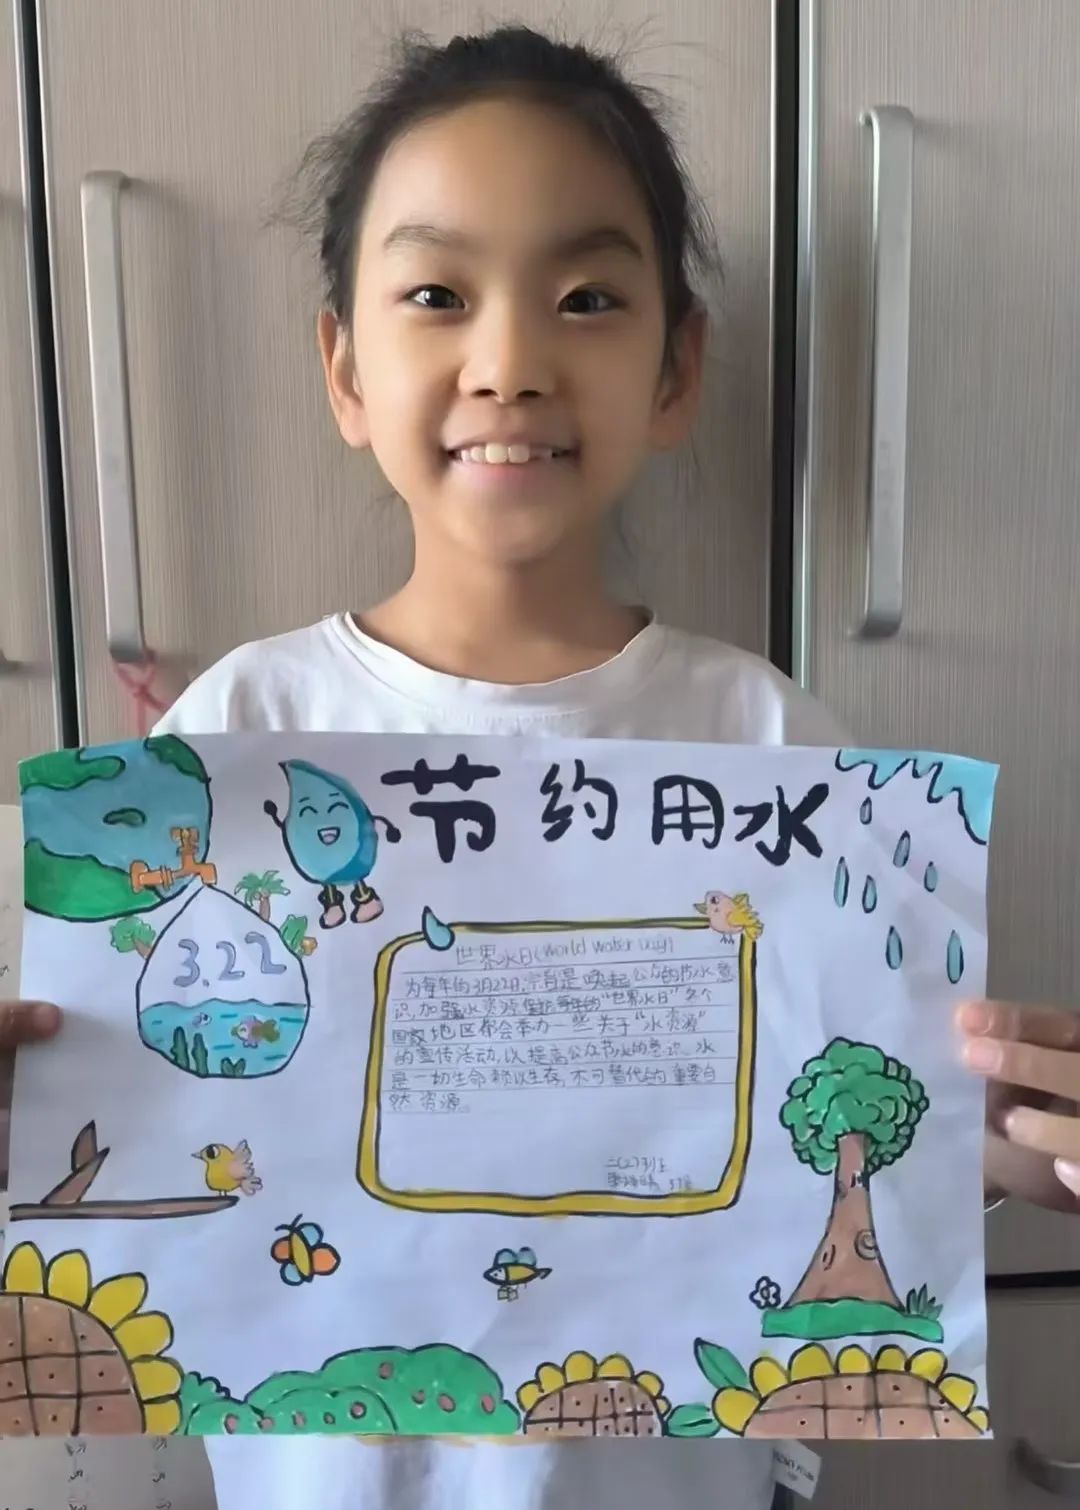 节约用水
3.22
世界水日(World Water Day)
为每年的3月22日,宗旨是唤起公众的节水意
识,加强水资源保护,每年的“世界水日”各个
国家地区都会举办一些关于“水资源”
的宣传活动,以提高公众节水的意识。水
是一切生命赖以生存,不可替代的重要自
然资源。
二(2)班